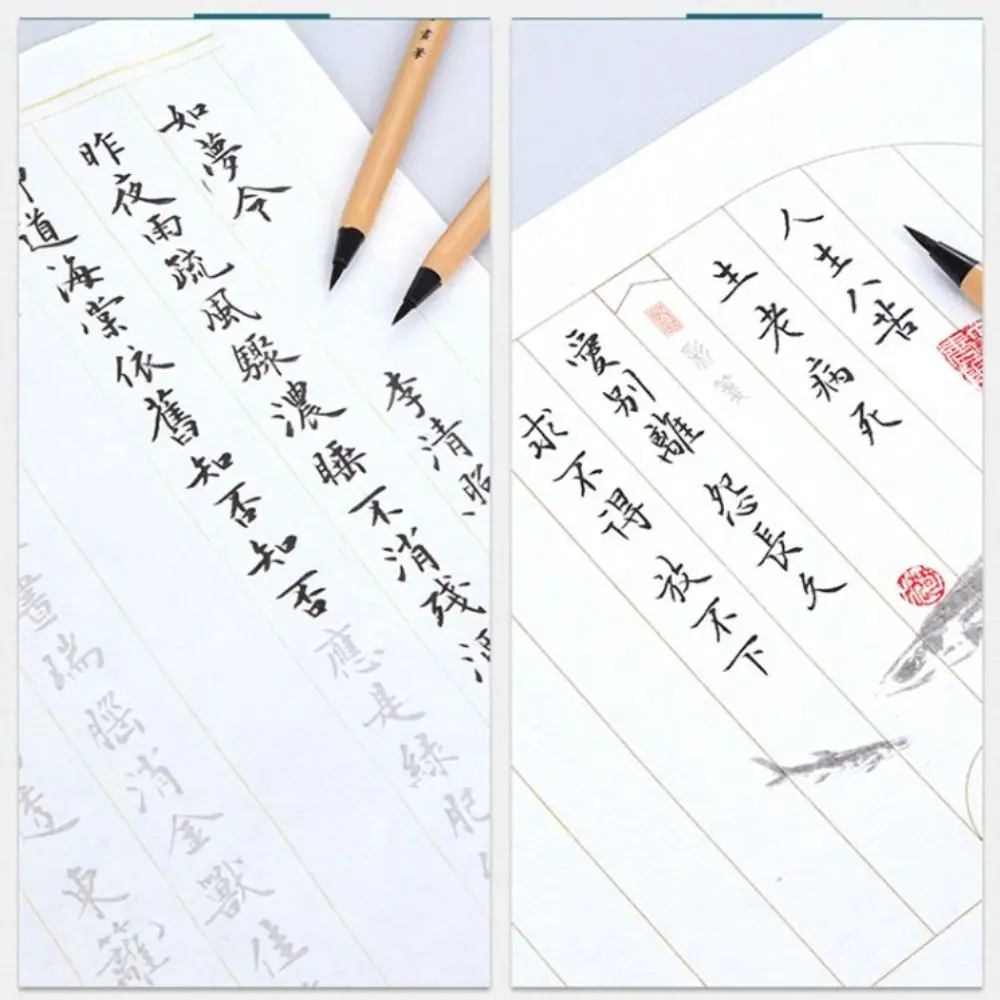 如夢令 李清照
昨夜雨疏風驟濃睡不消殘酒
道海棠依舊知否知否應是綠肥
晝瑞腦消金獸佳
東籬
人生八苦
生老病死
彩箋
愛別離 怨長久
求不得 放不下